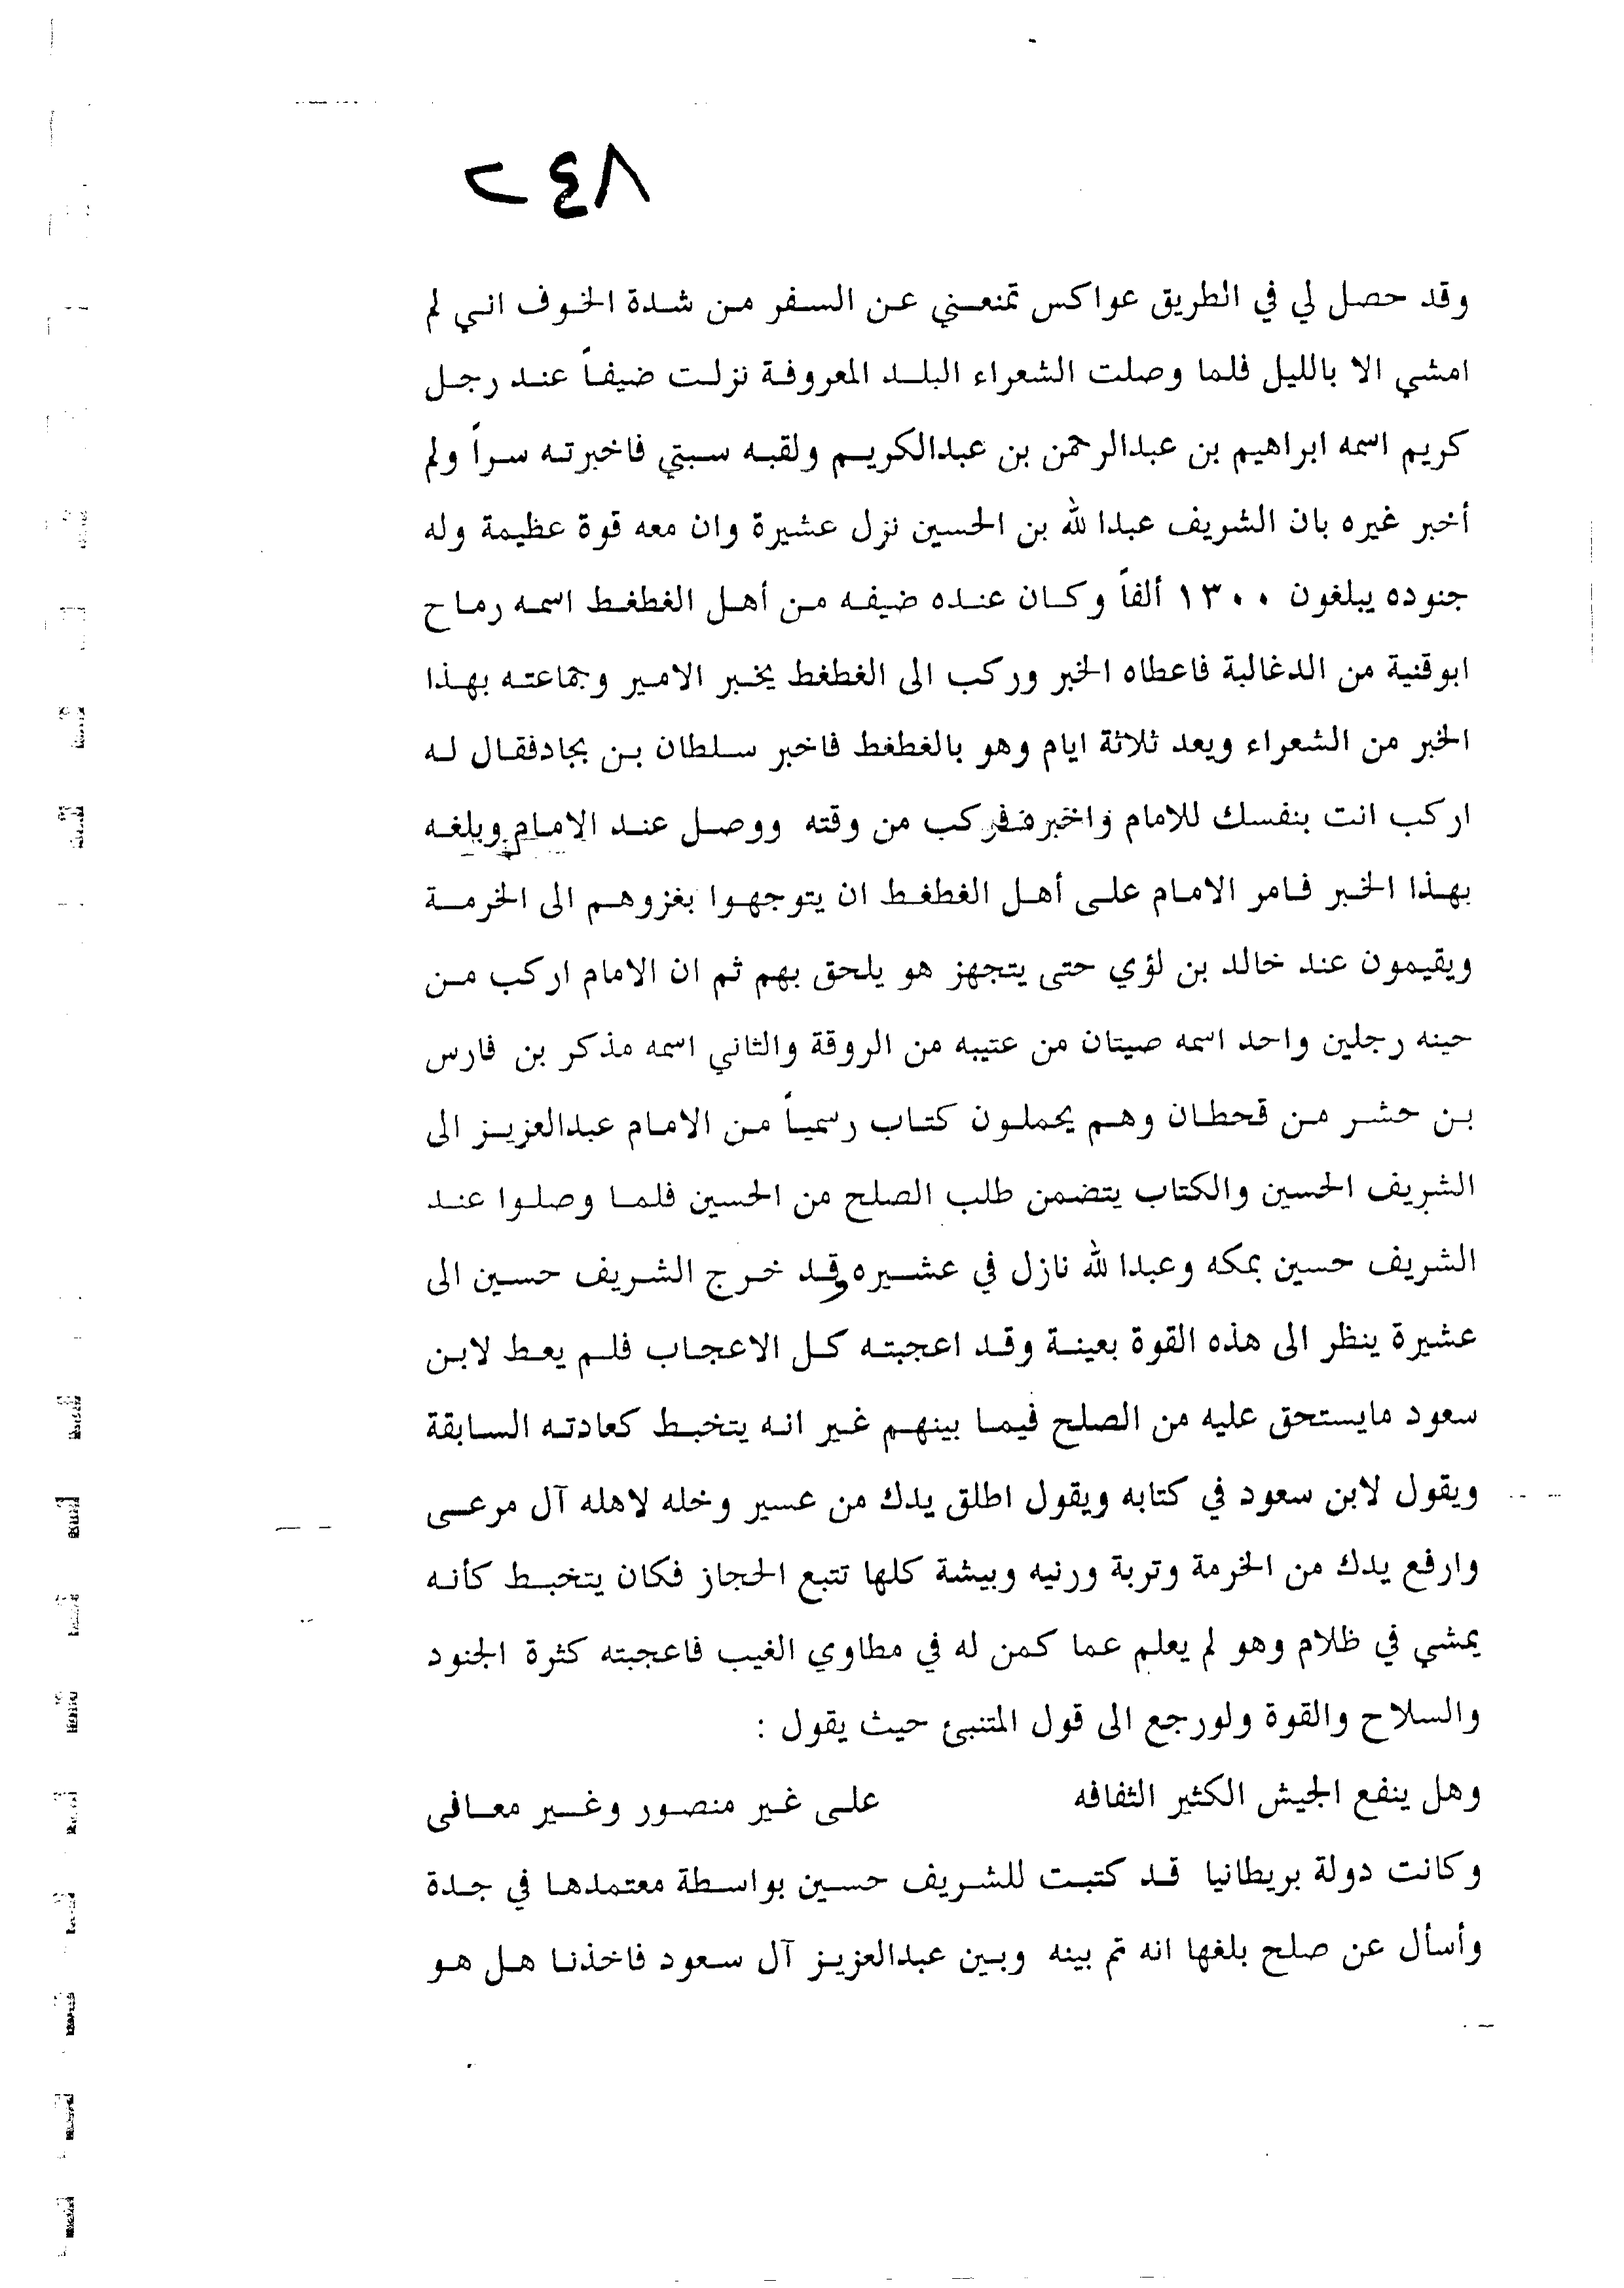 ٢٤٨
وقد حصل لي في الطريق عواكس تمنعني عن السفر من شدة الخوف اني لم
امشي الا بالليل فلما وصلت الشعراء البلد المعروفة نزلت ضيفاً عند رجل
كريم اسمه ابراهيم بن عبدالرحمن بن عبدالكريم ولقبه سبتي فاخبرته سراً ولم
أخبر غيره بان الشريف عبدالله بن الحسين نزل عشيرة وان معه قوة عظيمة وله
جنوده يبلغون ١٣٠٠ ألفاً وكان عنده ضيفه من أهل الغطغط اسمه رماح
ابوقنية من الدغالبة فاعطاه الخبر وركب الى الغطغط يخبر الامير وجماعته بهذا
الخبر من الشعراء وبعد ثلاثة ايام وهو بالغطغط فاخبر سلطان بن بجادفقال له
اركب انت بنفسك للامام واخبره فركب من وقته ووصل عند الامام وبلغه
بهذا الخبر فامر الامام على أهل الغطغط ان يتوجهوا بغزوهم الى الخرمة
ويقيمون عند خالد بن لؤي حتى يتجهز هو يلحق بهم ثم ان الامام اركب من
حينه رجلين واحد اسمه صيتان من عتيبه من الروقة والثاني اسمه مذكر بن فارس
بن حشر من قحطان وهم يحملون كتاب رسمياً من الامام عبدالعزيز الى
الشريف الحسين والكتاب يتضمن طلب الصلح من الحسين فلما وصلوا عند
الشريف حسين بمكه وعبدالله نازل في عشيره وقد خرج الشريف حسين الى
عشيرة ينظر الى هذه القوة بعينة وقد اعجبته كل الاعجاب فلم يعط لابن
سعود مايستحق عليه من الصلح فيما بينهم غير انه يتخبط كعادته السابقة
ويقول لابن سعود في كتابه ويقول اطلق يدك من عسير وخله لاهله آل مرعى
وارفع يدك من الخرمة وتربة ورنيه وبيشة كلها تتبع الحجاز فكان يتخبط كأنه
يمشي في ظلام وهو لم يعلم عما كمن له في مطاوي الغيب فاعجبته كثرة الجنود
والسلاح والقوة ولورجع الى قول المتنبئ حيث يقول :
وهل ينفع الجيش الكثير الثفافه على غير منصور وغير معافى
وكانت دولة بريطانيا قد كتبت للشريف حسين بواسطة معتمدها في جدة
وأسأل عن صلح بلغها انه تم بينه وبين عبدالعزيز آل سعود فاخذنا هل هو